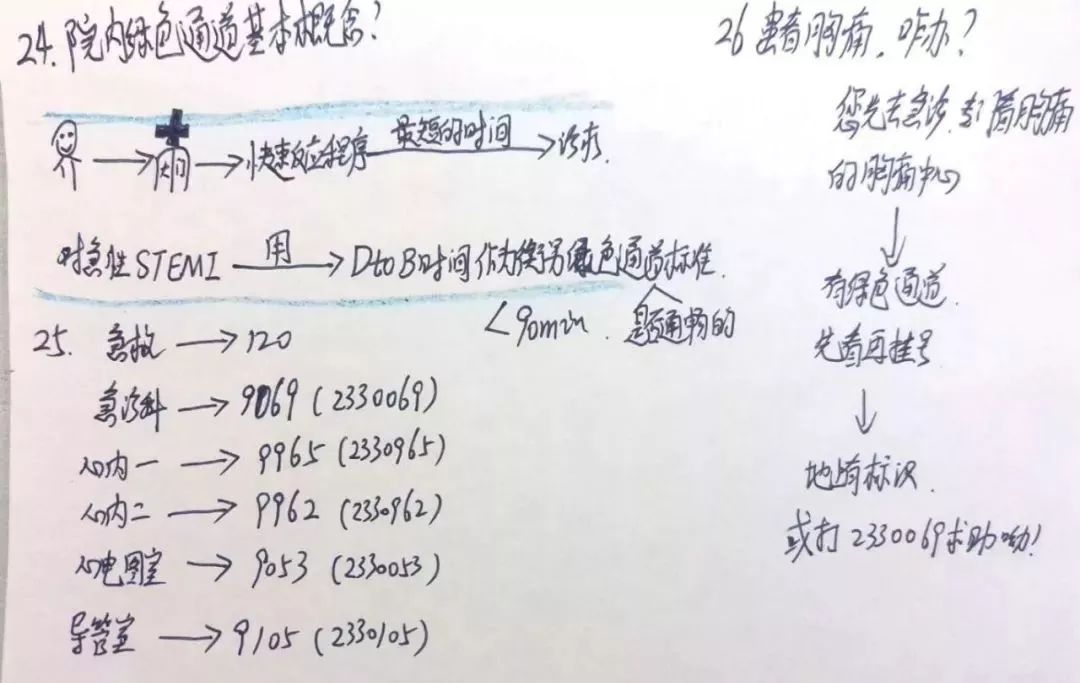 24. 院内绿色通道基本概念？
大门 → 快速反应程序 最短的时间 → 诊疗.
对急性STEMI 用 → DtoB时间作为衡量绿色通道标准.
<90min. 是通畅的
25. 急救 → 120
急诊科 → 9069 (2330069)
心内一 → 9965 (2330965)
心内二 → 9962 (2330962)
心电图室 → 9053 (2330053)
导管室 → 9105 (2330105)
26 患者胸痛，咋办？
您先去急诊,专门看胸痛
的胸痛中心
↓
有绿色通道.
先看再挂号
↓
地上有标识.
或打2330069求助呦！